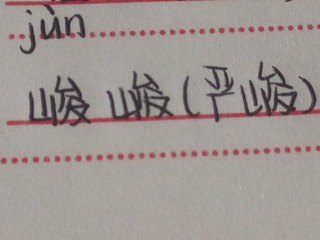 jùn
峻 峻(严峻)